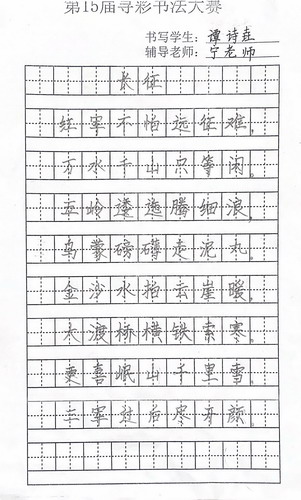 第15届寻彩书法大赛
书写学生：谭诗垚
辅导老师：宁老师
长征
红军不怕远征难，
万水千山只等闲。
五岭逶迤腾细浪，
乌蒙磅礴走泥丸。
金沙水拍云崖暖，
大渡桥横铁索寒。
更喜岷山千里雪，
三军过后尽开颜。